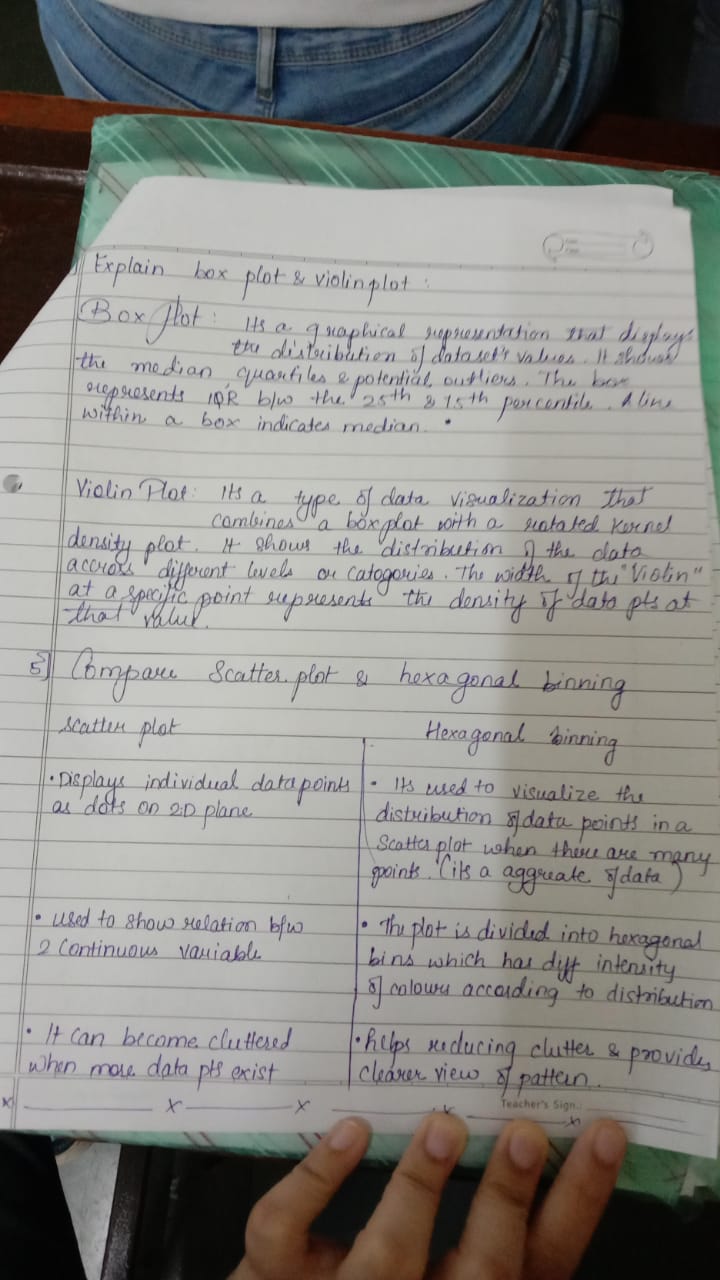 Explain box plot & violin plot :
Box Plot : Its a graphical representation that displays
the distribution of dataset's values. It shows
the median, quartiles & potential outliers. The box
represents IQR b/w the 25th & 75th percentile. A line
within a box indicates median.
Violin Plot: Its a type of data visualization that
combines a box plot with a rotated Kernel
density plot. It shows the distribution of the data
accross different levels or catogories. The width of the "Violin"
at a specific point represents the density of data pts at
that value.
5] Compare Scatter plot & hexagonal binning
Scatter plot
Hexagonal binning
• Displays individual data points
as dots on 2D plane
• Its used to visualize the
distribution of data points in a
Scatter plot when there are many
points. (its a aggreate of data)
• used to show relation b/w
2 Continuous variable
• The plot is divided into hexagonal
bins which has diff intensity
of colours according to distribution
• It can become cluttered
when more data pts exist
• helps reducing clutter & provides
clearer view of pattern.
Teacher's Sign.:
x x x x x